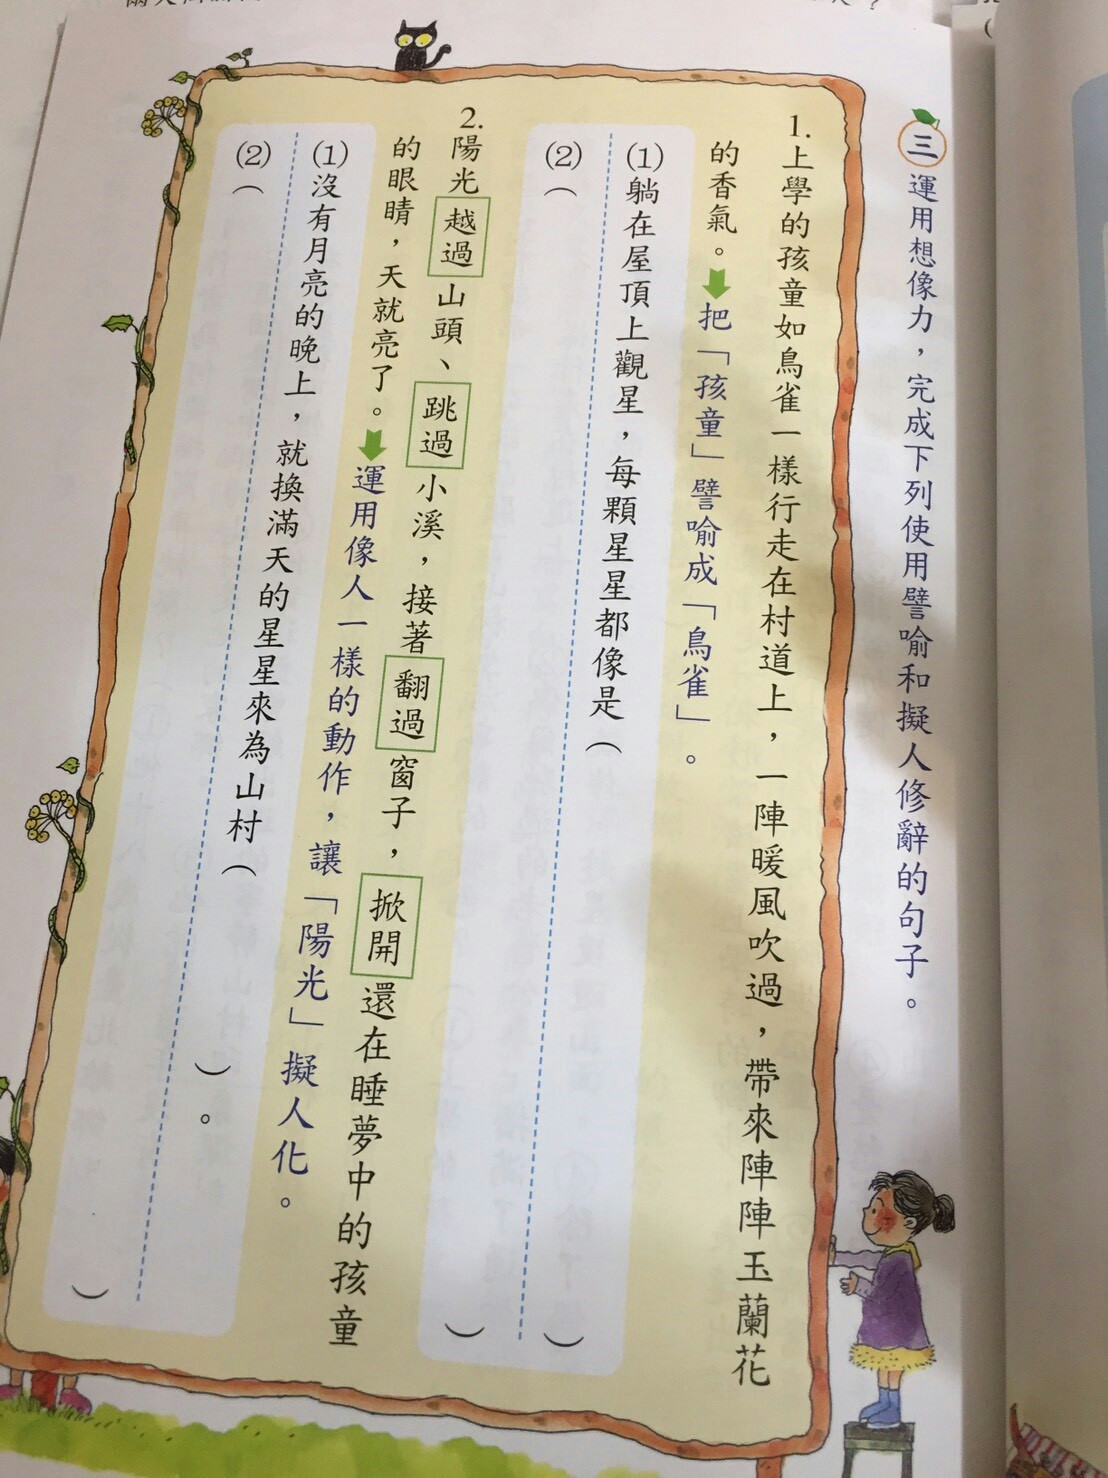 三 運用想像力，完成下列使用譬喻和擬人修辭的句子。
1.上學的孩童如鳥雀一樣行走在村道上，一陣暖風吹過，帶來陣陣玉蘭花
的香氣。把「孩童」譬喻成「鳥雀」。
(1)躺在屋頂上觀星，每顆星星都像是（ ）
(2)（ ）
2.陽光越過山頭、跳過小溪，接著翻過窗子，掀開還在睡夢中的孩童
的眼睛，天就亮了。運用像人一樣的動作，讓「陽光」擬人化。
(1)沒有月亮的晚上，就換滿天的星星來為山村（ ）。
(2)（ ）